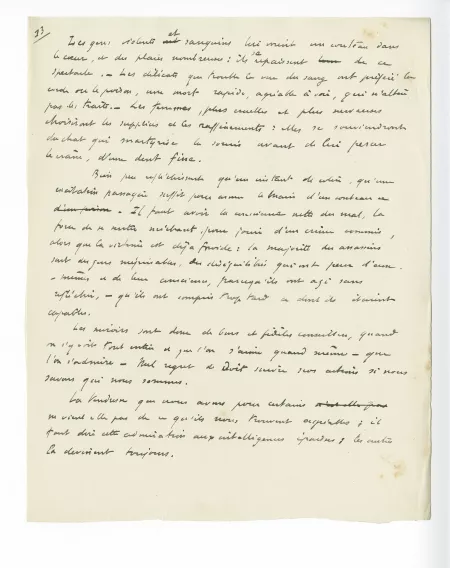 93
Les gens violents et sanguins lui voient un couteau dans
le cœur, et des plaies nombreuses : ils se repaissent de ce
spectacle. — Les délicats que trouble la vue du sang ont préféré la
corde ou le poison, une mort rapide, agréable à voir, qui n'altère
pas les traits. — Les femmes, plus cruelles et plus nerveuses
choisiront les supplices et les raffinements : elles se souviendront
du chat qui martyrise la souris avant de lui percer
le crâne, d'une dent fine.
Bien peu réfléchissent qu'un instant de colère, qu'une
passagère suffit pour armer le bras d'un couteau
. Il faut avoir la conscience nette du mal, la
force de se sentir méchant, pour jouir d'un crime commis,
alors que la victime est déjà froide : la majorité des assassins
sont des gens méprisables, des déséquilibrés qui ont peur d'eux
- mêmes et de leur conscience, parce qu'ils ont agi sans
réfléchir, — qu'ils ont compris trop tard ce dont ils étaient
capables.
Les miroirs sont donc de bons et fidèles conseillers, quand
on s'y voit tout entier et que l'on s'aime quand même — que
l'on s'admire — Nul regret ne doit suivre nos actions si nous
savons qui nous sommes.
La tendresse que nous avons pour certains
ne vient-elle pas de ce qu'ils nous trouvent agréables ; il
faut dire cette admiration aux intelligences épaisses ; les autres
la devinent toujours.